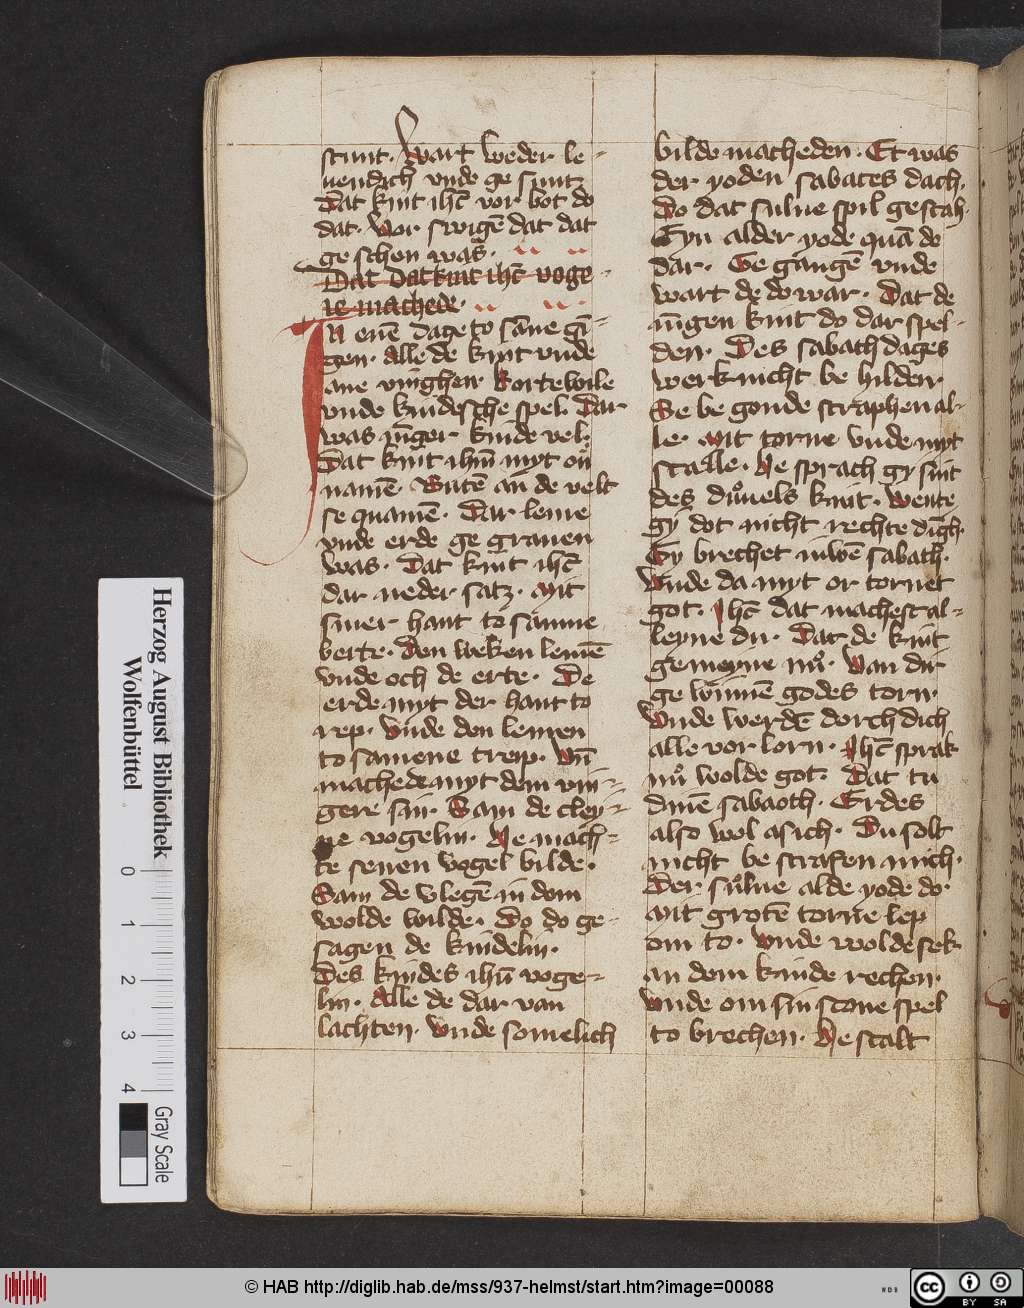 stunt. Wart weder le-
uendich vnde ge sunt.
Dat kint ihc̄ vor bot do
dat. Vor swigē dat dat
ge schen was.
Dat Dat kint ihc̄ voge
le machede.
In enē dage to sāne gī-
gen. Alle de kint vnde
ane vinghen. Korte wile
vnde kindesche spel. Dar
was iūger kinde vel.
Dat kint ihm̄ myt on̄
namē. Butē an de velt
se quamē. Dar leme
vnde erde ge grauen
was. Dat kint ihc̄
dar neder satz. Mit
siner hant to samne
berte. Den weken lemē
vnde och de erte. De
erde myt der hant to
rep. Vnde den lemen
to samene trep. Vn̄
machede myt dem vin-
gere sin. Sam de cley-
ne vogelin. He mach-
te seuen vogel bilde.
Sam de vlegē in dem
wolde wilde. Do do ge-
sagen de kindelin.
Des kindes ihū voge-
lin. Alle de dar van
lachten. Vnde somelich
bilde macheden. Et was
der yoden sabates dach.
Do dat sulue spil geschah.
Eyn alder yode quā de
dar. Ge gangē vnde
wart de do war. Dat de
iūgen kint do dar spel-
den. Des sabath dages
werk nicht be hilden.
Se be gonde straphen al-
le. Mit torne vnde myt
scalle. He sprach gy sint
des duͦuels kint. Wente
gy dot nicht rechte dīgh.
Gy brechet iuwē sabath.
Vnde da myt or tornet
got. Ihc̄ dat machest al-
leyne du. Dat de kint
gemeyne nuͦ. Van dir
ge winnē godes torn.
Vnde werdē dorch dich
alle vor lorn. Ihc̄ sprak
nuͦ wolde got. Dat tu
dinē sabaoth. Erdes
also wol als ich. Du solt
nicht be strafen mich.
Der suͦlue alde yode do.
Mit grotē torne lep
om to. Vnde wolde sek
an dem kinde rechen.
Vnde om sin scone spel
to brechen. He stalt
Herzog August Bibliothek
Wolfenbüttel
0 1 2 3 4
Gray Scale
© HAB http://diglib.hab.de/mss/937-helmst/start.htm?image=00088
WDB
cc BY SA